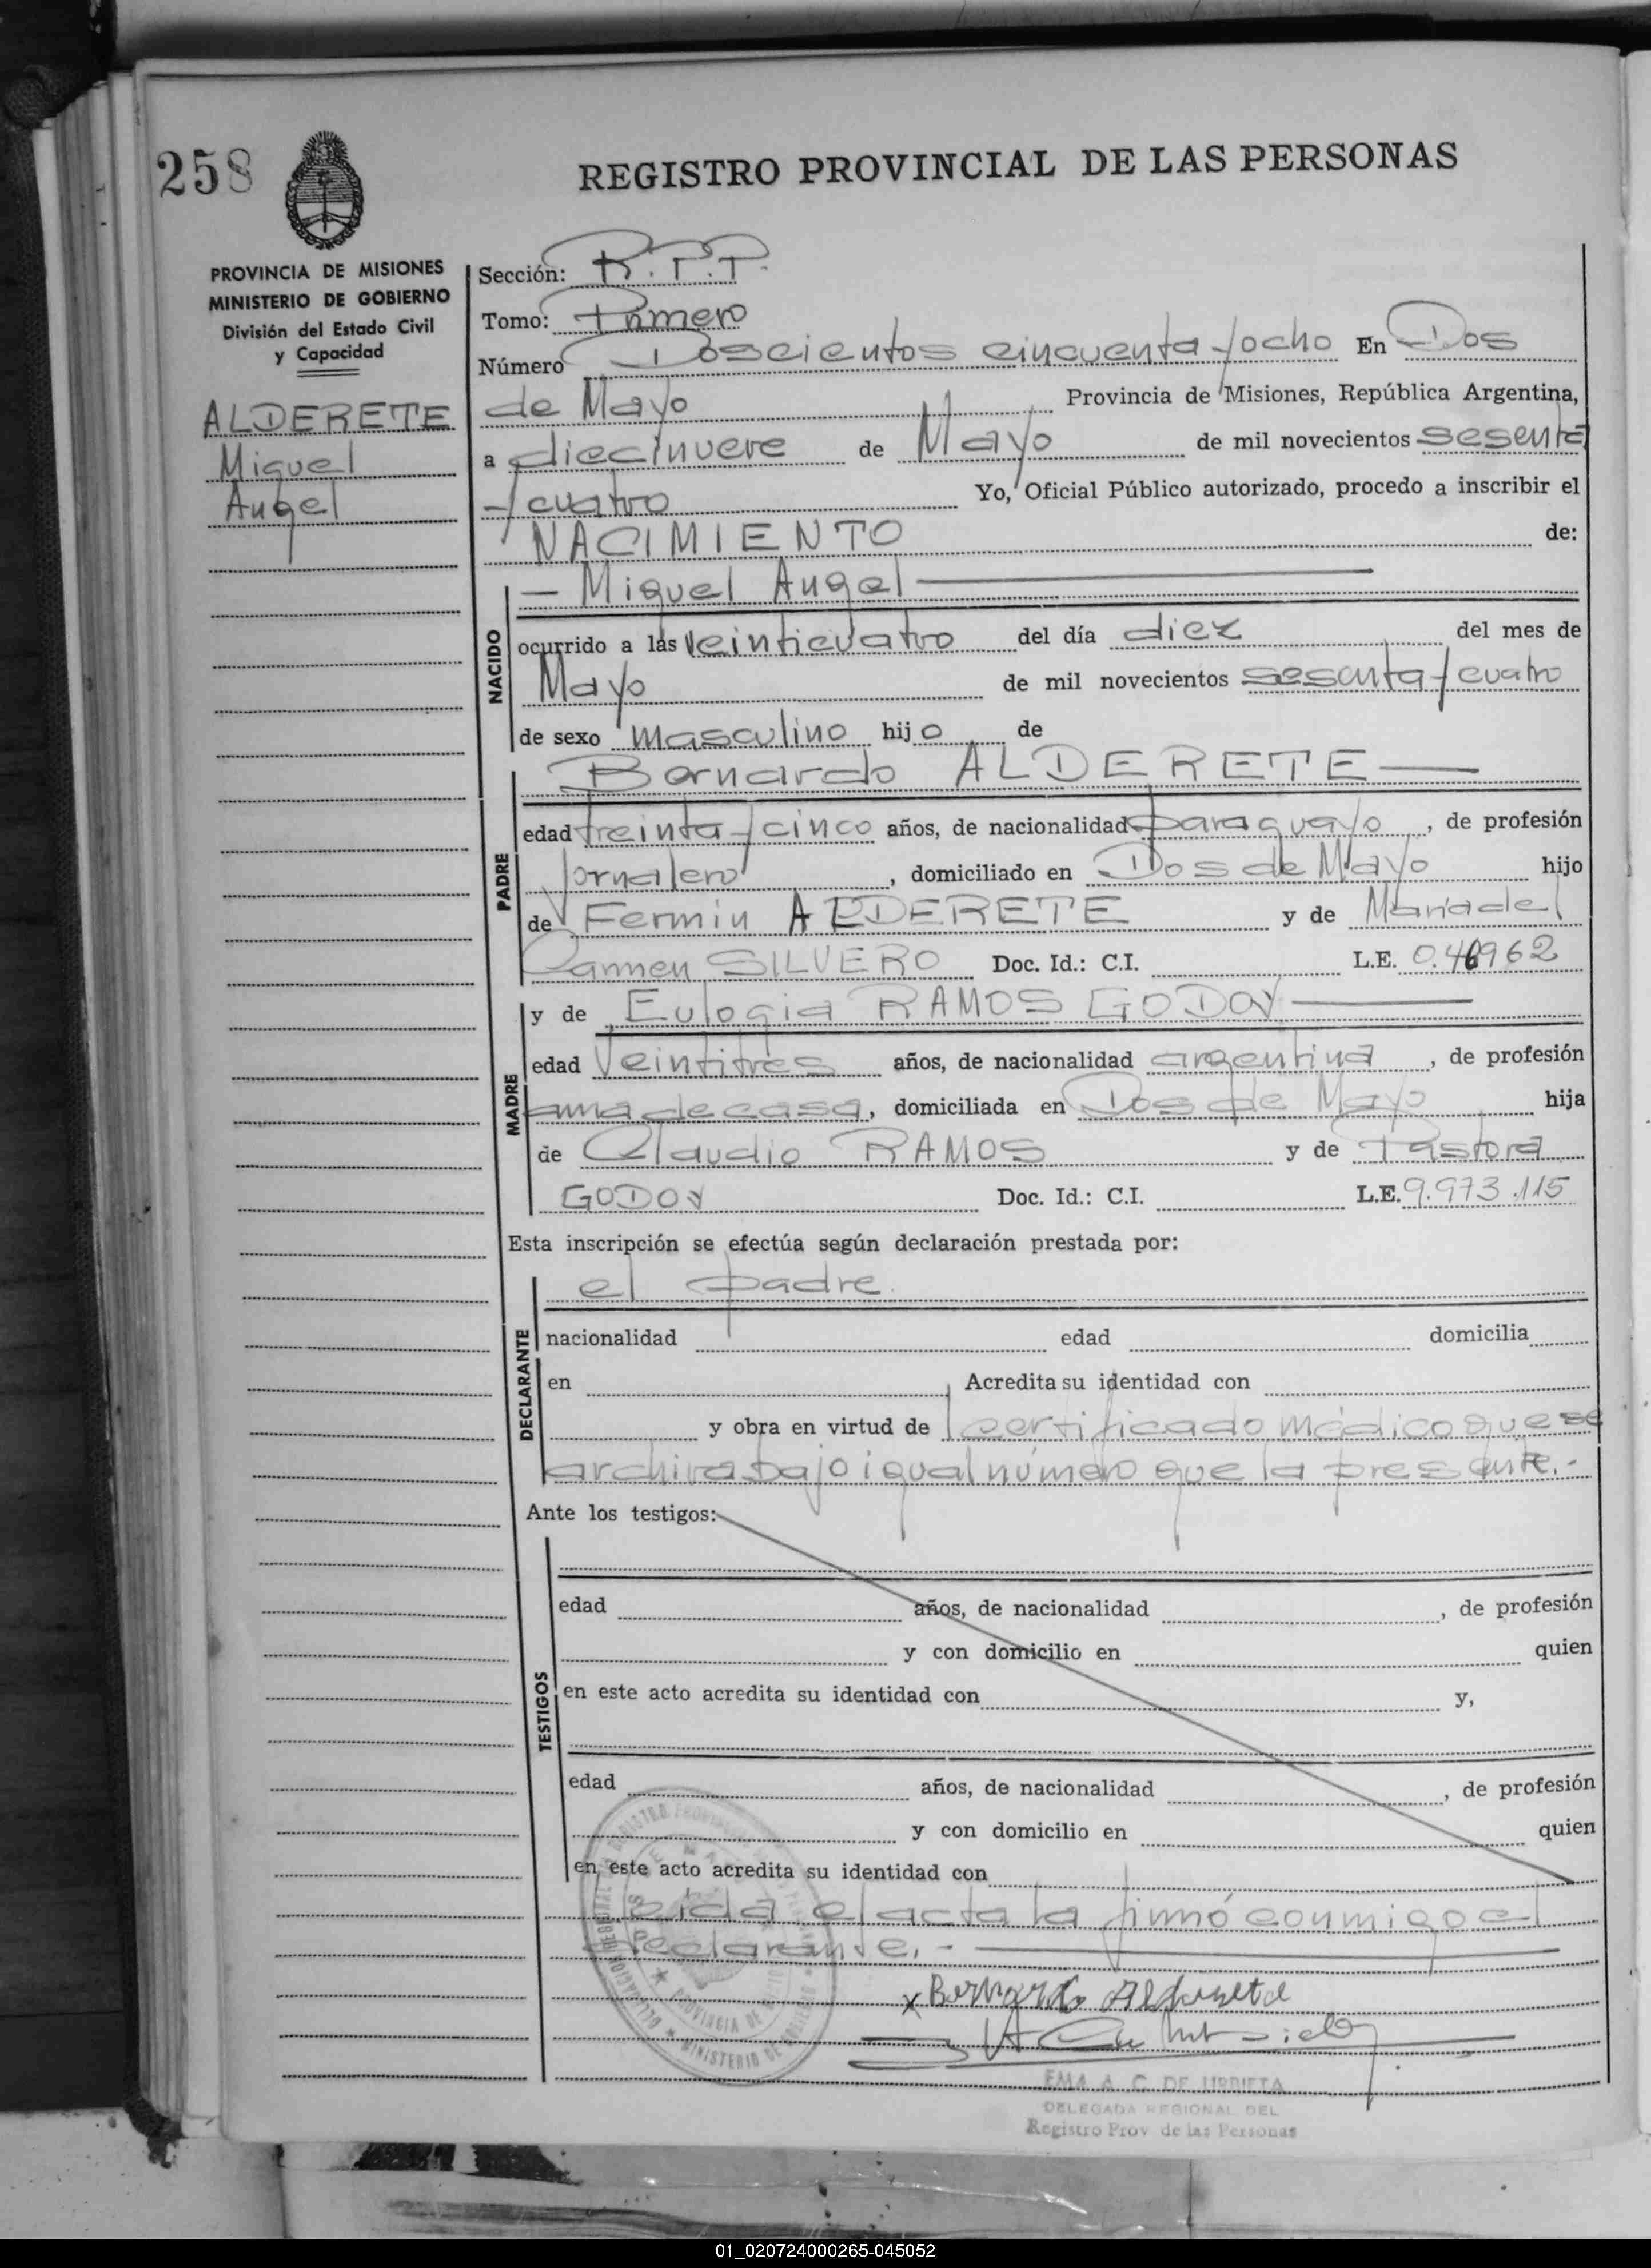 258
REGISTRO PROVINCIAL DE LAS PERSONAS
PROVINCIA DE MISIONES
MINISTERIO DE GOBIERNO
División del Estado Civil
y Capacidad
ALDERETE
Miguel
Angel
Sección:
Tomo: Primero
Número Doscientos cincuenta y ocho En Dos
de Mayo Provincia de Misiones, República Argentina,
a diecinueve de Mayo de mil novecientos sesenta
y cuatro Yo, Oficial Público autorizado, procedo a inscribir el
NACIMIENTO de:
NACIDO
— Miguel Angel —
ocurrido a las veinticuatro del día diez del mes de
Mayo de mil novecientos sesenta y cuatro
de sexo masculino hijo de
PADRE
Bernardo ALDERETE —
edad treinta y cinco años, de nacionalidad paraguayo, de profesión
jornalero, domiciliado en Dos de Mayo hijo
de Fermin ALDERETE y de Maria del
Carmen SILVERO Doc. Id.: C.I. L.E.
MADRE
y de Eulogia RAMOS GODOY —
edad Veintitrés años, de nacionalidad argentina, de profesión
ama de casa, domiciliada en Dos de Mayo hija
de Claudio RAMOS y de Pastora
GODOY Doc. Id.: C.I. L.E. 9.973.115
Esta inscripción se efectúa según declaración prestada por:
DECLARANTE
el padre
nacionalidad edad domicilia
en Acredita su identidad con
y obra en virtud de certificado médico que se
archiva bajo igual número que la presente.-
Ante los testigos:
TESTIGOS
edad años, de nacionalidad , de profesión
y con domicilio en quien
en este acto acredita su identidad con y,
edad años, de nacionalidad , de profesión
y con domicilio en quien
en este acto acredita su identidad con
Leída el acta la firmó conmigo el
declarante.- —
x Bernardo Alderete
EMA A. C. DE URRIETA
DELEGADA REGIONAL DEL
Registro Prov de las Personas
01_020724000265-045052